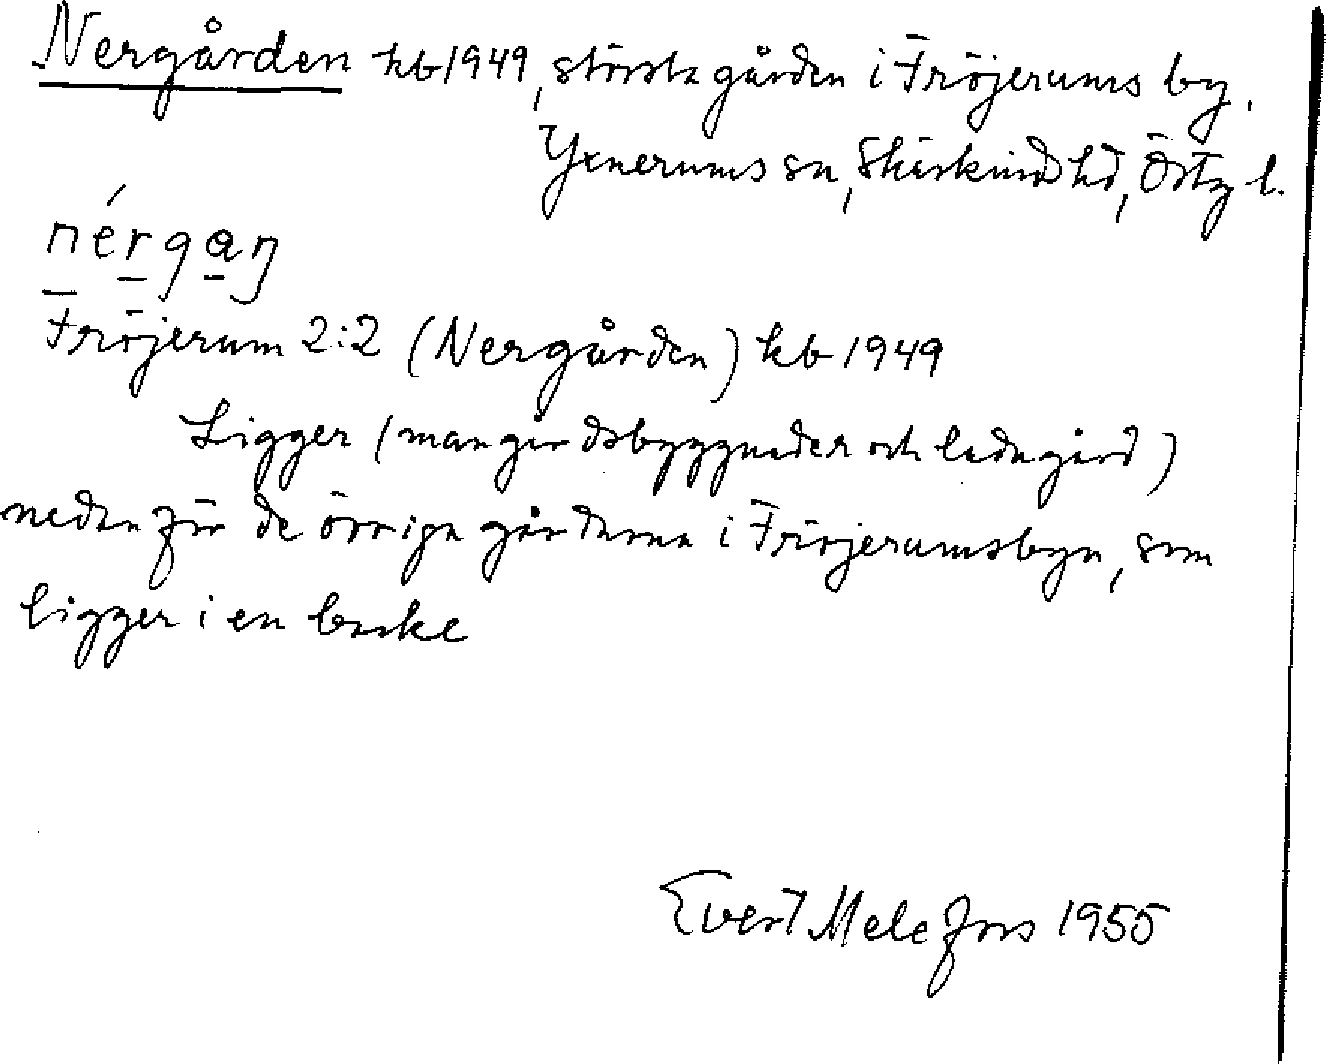 Nergården kb 1949, största gården i Fröjerums by.
Yxnerums sn, Skärkind hd, Östg l.
nérgaŋ
Fröjerum 2:2 (Nergården) kb 1949
Ligger (mangårdsbyggnader och ladugård)
nedanför de övriga gårdarna i Fröjerumsbyn, som
ligger i en backe
Evert Melefors 1955